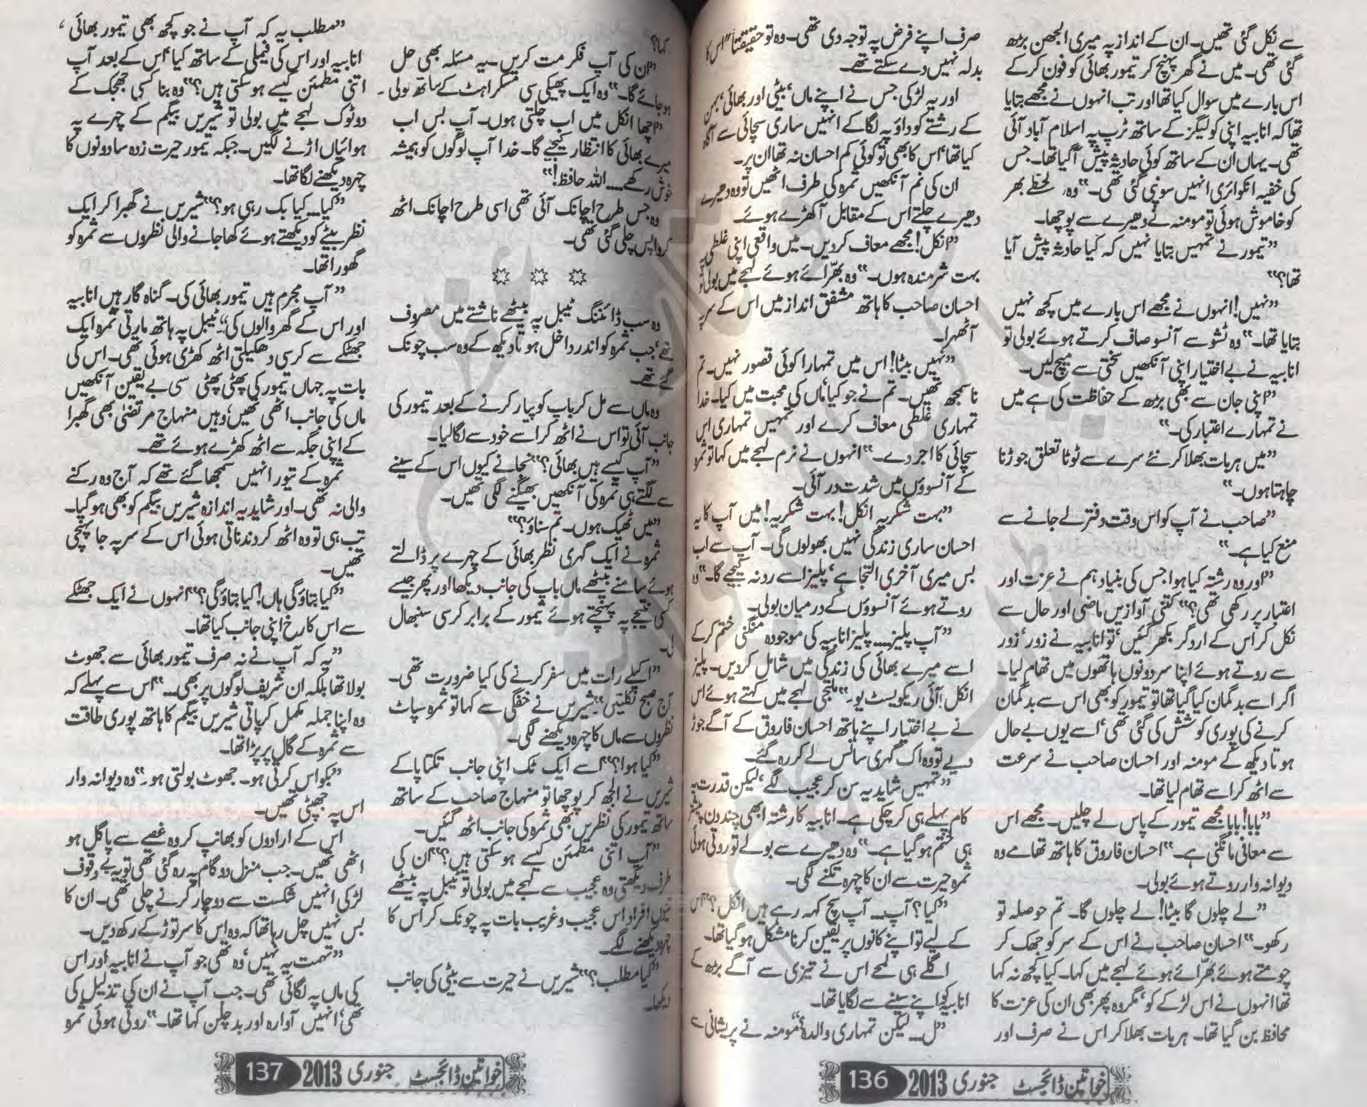 سے نکل گئی تھیں۔ ان کے انداز پہ میری الجھن بڑھ
گئی تھی۔ میں نے گھر پہنچ کر تیمور بھائی کو فون کر کے
اس بارے میں سوال کیا تھا اور تب انہوں نے مجھے بتایا
تھا کہ انابیہ اپنی کولیگز کے ساتھ ٹرپ پہ اسلام آباد آئی
تھی۔ یہاں ان کے ساتھ کوئی حادثہ پیش آ گیا تھا۔ جس
کی خفیہ انکوائری انہیں سونپی گئی تھی۔“ وہ لحظے بھر
کو خاموش ہوئی تو مومنہ نے دھیرے سے پوچھا۔
”تیمور نے تمہیں بتایا نہیں کہ کیا حادثہ پیش آیا
تھا؟“
”نہیں! انہوں نے مجھے اس بارے میں کچھ نہیں
بتایا تھا۔“ وہ ٹشو سے آنسو صاف کرتے ہوئے بولی تو
انابیہ نے بے اختیار اپنی آنکھیں سختی سے میچ لیں۔
”اپنی جان سے بھی بڑھ کے حفاظت کی ہے میں
نے تمہارے اعتبار کی۔“
”میں ہر بات بھلا کر نئے سرے سے ٹوٹا تعلق جوڑنا
چاہتا ہوں۔“
”صاحب نے آپ کو اس وقت دفتر لے جانے سے
منع کیا ہے۔“
”اور وہ رشتہ کیا ہوا جس کی بنیاد ہم نے عزت اور
اعتبار پر رکھی تھی؟“ کتنی آوازیں ماضی اور حال سے
نکل کر اس کے ارد گرد بکھر گئیں‘ تو انابیہ نے زور‘ زور
سے روتے ہوئے اپنا سر دونوں ہاتھوں میں تھام لیا۔
اگر اسے بدگمان کیا گیا تھا تو تیمور کو بھی اس سے بدگمان
کرنے کی پوری کوشش کی گئی تھی‘ اسے یوں بے حال
ہوتا دیکھ کے مومنہ اور احسان صاحب نے سرعت
سے اٹھ کر اسے تھام لیا تھا۔
”بابا! بابا مجھے تیمور کے پاس لے چلیں۔ مجھے اس
سے معافی مانگنی ہے۔“ احسان فاروق کا ہاتھ تھامے وہ
دیوانہ وار روتے ہوئے بولی۔
”لے چلوں گا بیٹا! لے چلوں گا۔ تم حوصلہ تو
رکھو۔“ احسان صاحب نے اس کے سر کو جھک کر
چومتے ہوئے بھرائے ہوئے لہجے میں کہا۔ کیا کچھ نہ کہا
تھا انہوں نے اس لڑکے کو‘ مگر وہ پھر بھی ان کی عزت کا
محافظ بن گیا تھا۔ ہر بات بھلا کر اس نے صرف اور
صرف اپنے فرض پہ توجہ دی تھی۔ وہ تو حقیقتاً اس کا
بدلہ نہیں دے سکتے تھے۔
اور یہ لڑکی جس نے اپنے ماں‘ بیٹی اور بھائی‘ بہن
کے رشتے کو داؤ پہ لگا کے انہیں ساری سچائی سے آگاہ
کیا تھا‘ اس کا بھی تو کوئی کم احسان نہ تھا ان پر۔
ان کی نم آنکھیں ثمرہ کی طرف اٹھیں تو وہ دھیرے
دھیرے چلتے اس کے مقابل آ کھڑے ہوئے۔
”انکل! مجھے معاف کر دیں۔ میں واقعی اپنی غلطی پہ
بہت شرمندہ ہوں۔“ وہ بھرائے ہوئے لہجے میں بولی تو
احسان صاحب کا ہاتھ مشفق انداز میں اس کے سر پہ
آٹھہرا۔
”نہیں بیٹا! اس میں تمہارا کوئی قصور نہیں۔ تم
ناسمجھ تھیں۔ تم نے جو کیا‘ ماں کی محبت میں کیا۔ خدا
تمہاری غلطی معاف کرے اور تمہیں تمہاری اس
سچائی کا اجر دے۔“ انہوں نے نرم لہجے میں کہا تو ثمرہ
کے آنسوؤں میں شدت در آئی۔
”بہت شکریہ انکل! بہت شکریہ! میں آپ کا یہ
احسان ساری زندگی نہیں بھولوں گی۔ آپ سے اب
بس میری آخری التجا ہے‘ پلیز اسے رد نہ کیجیے گا۔“ وہ
روتے ہوئے آنسوؤں کے درمیان بولی۔
”آپ پلیز.... پلیز انابیہ کی موجودہ منگنی ختم کر کے
اسے میرے بھائی کی زندگی میں شامل کر دیں۔ پلیز
انکل! آئی ریکویسٹ یو۔“ ملتجی لہجے میں کہتے ہوئے اس
نے بے اختیار اپنے ہاتھ احسان فاروق کے آگے جوڑ
دیے تو وہ اک گہری سانس لے کر رہ گئے۔
”تمہیں شاید یہ سن کر عجیب لگے‘ لیکن قدرت یہ
کام پہلے ہی کر چکی ہے۔ انابیہ کا رشتہ ابھی چند دن پیشتر
ہی ختم ہو گیا ہے۔“ وہ دھیرے سے بولے تو روتی ہوئی
ثمرہ حیرت سے ان کا چہرہ تکنے لگی۔
”کیا؟ آپ.... آپ سچ کہہ رہے ہیں انکل؟“ اس
کے لیے تو اپنے کانوں پر یقین کرنا مشکل ہو گیا تھا۔
اگلے ہی لمحے اس نے تیزی سے آگے بڑھ کے
انابیہ کو اپنے سینے سے لگایا تھا۔
”ل.... لیکن تمہاری والدہ؟“ مومنہ نے پریشانی سے
خواتین ڈائجسٹ جنوری 2013 136
کہا؟
”ان کی آپ فکر مت کریں۔ یہ مسئلہ بھی حل
ہو جائے گا۔“ وہ ایک پھیکی سی مسکراہٹ کے ساتھ بولی۔
”اچھا انکل میں اب چلتی ہوں۔ آپ بس اب
میرے بھائی کا انتظار کیجیے گا۔ خدا آپ لوگوں کو ہمیشہ
خوش رکھے.... اللہ حافظ!“
وہ جس طرح اچانک آئی تھی اسی طرح اچانک اٹھ
کر واپس چلی گئی تھی۔
☼ ☼ ☼
وہ سب ڈائننگ ٹیبل پہ بیٹھے ناشتے میں مصروف
تھے‘ جب ثمرہ کو اندر داخل ہوتا دیکھ کے وہ سب چونک
گئے تھے۔
وہ ماں سے مل کر باپ کو پیار کرنے کے بعد تیمور کی
جانب آئی تو اس نے اٹھ کر اسے خود سے لگا لیا۔
”آپ کیسے ہیں بھائی؟“ نجانے کیوں اس کے سینے
سے لگتے ہی ثمرہ کی آنکھیں بھیگنے لگی تھیں۔
”میں ٹھیک ہوں۔ تم سناؤ؟“
ثمرہ نے ایک گہری نظر بھائی کے چہرے پر ڈالتے
ہوئے سامنے بیٹھے ماں باپ کی جانب دیکھا اور پھر جیسے
کسی نتیجے پہ پہنچتے ہوئے تیمور کے برابر کرسی سنبھال
لی۔
”اکیلے رات میں سفر کرنے کی کیا ضرورت تھی۔
آج صبح نکلتیں۔“ شیریں نے خفگی سے کہا تو ثمرہ سپاٹ
نظروں سے ماں کا چہرہ دیکھنے لگی۔
”کیا ہوا؟“ اسے ایک ٹک اپنی جانب تکتا پا کے
شیریں نے الجھ کر پوچھا تو منہاج صاحب کے ساتھ
ساتھ تیمور کی نظریں بھی ثمرہ کی جانب اٹھ گئیں۔
”آپ اتنی مطمئن کیسے ہو سکتی ہیں؟“ ان کی
طرف دیکھتی وہ عجیب سے لہجے میں بولی تو ٹیبل پہ بیٹھے
تینوں افراد اس عجیب و غریب بات پہ چونک کر اس کا
چہرہ دیکھنے لگے۔
”کیا مطلب؟“ شیریں نے حیرت سے بیٹی کی جانب
دیکھا۔
”مطلب یہ کہ آپ نے جو کچھ بھی تیمور بھائی‘
انابیہ اور اس کی فیملی کے ساتھ کیا‘ اس کے بعد آپ
اتنی مطمئن کیسے ہو سکتی ہیں؟“ وہ بنا کسی جھجک کے
دو ٹوک لہجے میں بولی تو شیریں بیگم کے چہرے پہ
ہوائیاں اڑنے لگیں۔ جبکہ تیمور حیرت زدہ سا دونوں کا
چہرہ دیکھنے لگا تھا۔
”کیا.... کیا بک رہی ہو؟“ شیریں نے گھبرا کر ایک
نظر بیٹے کو دیکھتے ہوئے کھا جانے والی نظروں سے ثمرہ کو
گھورا تھا۔
”آپ مجرم ہیں تیمور بھائی کی۔ گناہ گار ہیں انابیہ
اور اس کے گھر والوں کی“ ٹیبل پہ ہاتھ مارتی ثمرہ ایک
جھٹکے سے کرسی دھکیلتی اٹھ کھڑی ہوئی تھی۔ اس کی
بات پہ جہاں تیمور کی پھٹی پھٹی سی بے یقین آنکھیں
ماں کی جانب اٹھی تھیں‘ وہیں منہاج مرتضیٰ بھی گھبرا
کے اپنی جگہ سے اٹھ کھڑے ہوئے تھے۔
ثمرہ کے تیور انہیں سمجھا گئے تھے کہ آج وہ رکنے
والی نہ تھی۔ اور شاید یہ اندازہ شیریں بیگم کو بھی ہو گیا۔
تب ہی تو وہ اٹھ کر دندناتی ہوئی اس کے سر پہ جا پہنچی
تھیں۔
”کیا بتاؤ گی ہاں! کیا بتاؤ گی؟“ انہوں نے ایک جھٹکے
سے اس کا رخ اپنی جانب کیا تھا۔
”یہ کہ آپ نے نہ صرف تیمور بھائی سے جھوٹ
بولا تھا بلکہ ان شریف لوگوں پر بھی....“ اس سے پہلے کہ
وہ اپنا جملہ مکمل کر پاتی شیریں بیگم کا ہاتھ پوری طاقت
سے ثمرہ کے گال پر پڑا تھا۔
”بکواس کرتی ہو۔ جھوٹ بولتی ہو۔“ وہ دیوانہ وار
اس پہ جھپٹی تھیں۔
اس کے ارادوں کو بھانپ کر وہ غصے سے پاگل ہو
اٹھی تھیں۔ جب منزل دو گام پہ رہ گئی تھی تو یہ بے وقوف
لڑکی انہیں شکست سے دوچار کرنے چلی تھی۔ ان کا
بس نہیں چل رہا تھا کہ وہ اس کا سر توڑ کے رکھ دیں۔
”تہمت یہ نہیں‘ وہ تھی جو آپ نے انابیہ اور اس
کی ماں پہ لگائی تھی۔ جب آپ نے ان کی تذلیل کی
تھی‘ انہیں آوارہ اور بدچلن کہا تھا۔“ روتی ہوئی ثمرہ
خواتین ڈائجسٹ جنوری 2013 137